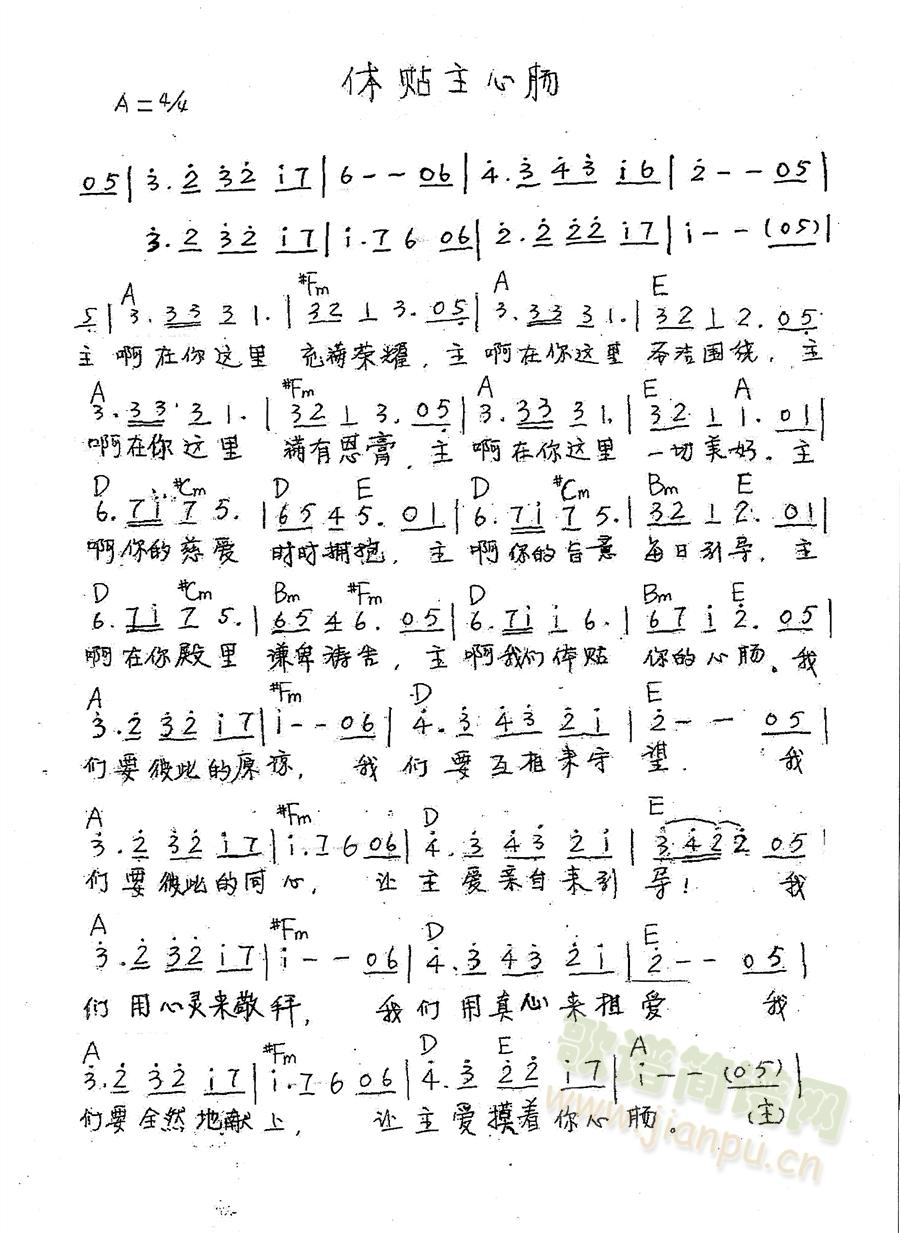 体贴主心肠
A=4/4
05|3.2 32 i7|6--06|4.3 43 i6|2--05|
3.2 32 i7|i.7 6 06|2.2 22 i7|i--(05)|
A #Fm A E
5|3.33 3 1.|32 1 3.05|3.33 31.|321 2.05
主啊在你这里 充满荣耀,主啊在你这里 圣洁围绕,主
A #Fm A E A
3.33 3 1.|321 3.05|3.33 31.|321 1.01|
啊在你这里 满有恩膏,主啊在你这里 一切美好。主
D #Cm D E D #Cm Bm E
6.7i 7 5.|65 4 5.01|6.7i 7 5.|321 2.01|
啊你的慈爱 时时拥抱,主啊你的旨意 每日引导,主
D #Cm Bm #Fm D Bm E
6.7i 7 5.|65 4 6.05|6.7i i 6.|67 i 2.05|
啊在你殿里 谦卑 主啊我们体贴 你的心肠。我
A #Fm D E
3.2 32 i7|i--06|4.3 43 2i|2--05|
们要彼此的原谅, 我们要互相来守望. 我
A #Fm D E
3.2 32 i7|i.7 6 06|4.3 43 2i|3422 05|
们要彼此的同心, 让主爱亲自来引导! 我
A #Fm D E
3.2 32 i7|i--06|4.3 43 2i|2--05|
们用心灵来敬拜, 我们用真心来相爱 我
A #Fm D E A
3.2 32 i7|i.7 6 06|4.3 22 i7|i--(05)|
们要全然地献上, 让主爱摸着你心肠。(主)
歌谱简谱网
www.jianpu.cn